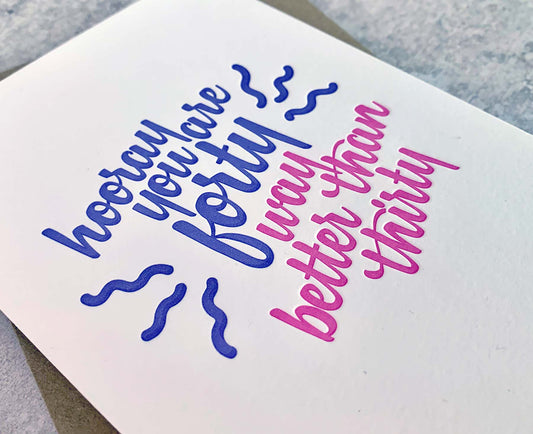 hooray
you are
forty
way
better than
thirty